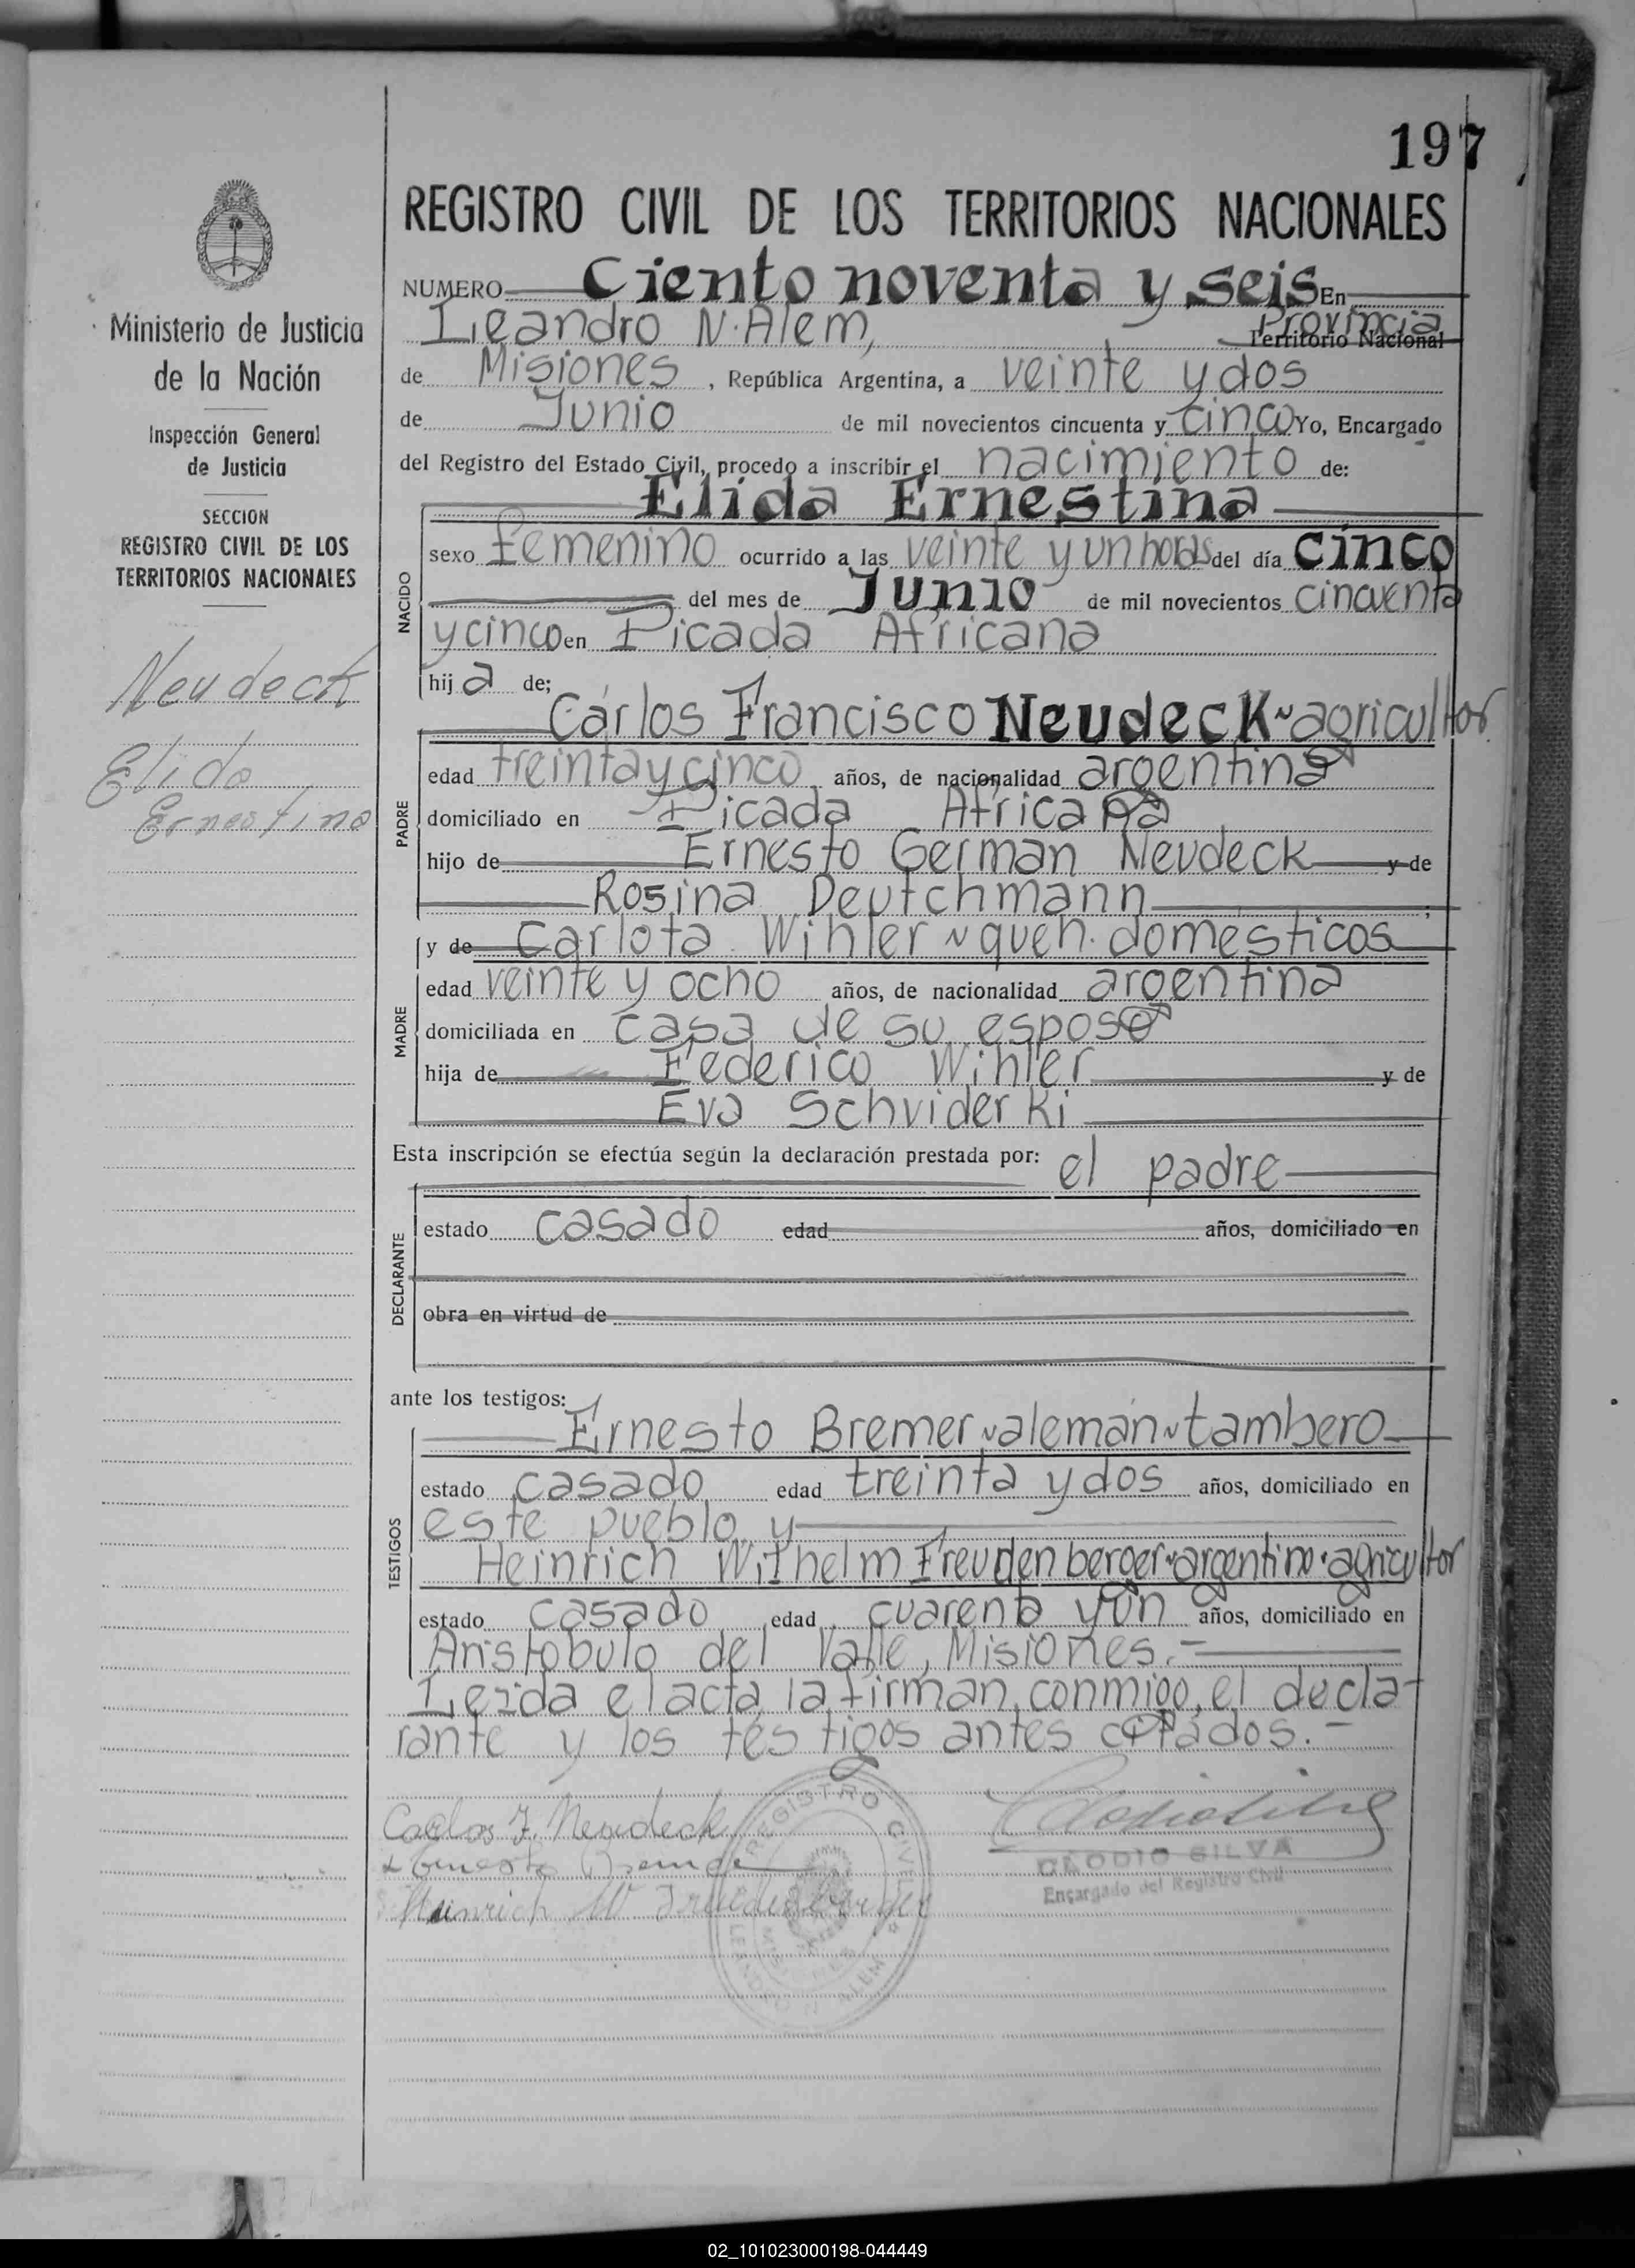 197
REGISTRO CIVIL DE LOS TERRITORIOS NACIONALES
Ministerio de Justicia
de la Nación
Inspección General
de Justicia
SECCION
REGISTRO CIVIL DE LOS
TERRITORIOS NACIONALES
Neudeck
Elida
Ernestina
NUMERO Ciento noventa y seis En
Leandro N. Alem, Provincia
Territorio Nacional
de Misiones, República Argentina, a veinte y dos
de Junio de mil novecientos cincuenta y cinco Yo, Encargado
del Registro del Estado Civil, procedo a inscribir el nacimiento de:
NACIDO
Elida Ernestina
sexo femenino ocurrido a las veinte y un horas del día cinco
del mes de Junio de mil novecientos cincuenta
y cinco en Picada Africana
hija de;
PADRE
Carlos Francisco Neudeck ~ agricultor
edad treinta y cinco años, de nacionalidad argentina
domiciliado en Picada Africana
hijo de Ernesto German Neudeck y de
Rosina Deutchmann ;
MADRE
y de Carlota Wihler ~ queh. domesticos
edad veinte y ocho años, de nacionalidad argentina
domiciliada en casa de su esposo
hija de Federico Wihler y de
Eva Schviderki
Esta inscripción se efectúa según la declaración prestada por: el padre
DECLARANTE
estado casado edad años, domiciliado en
obra en virtud de
ante los testigos:
TESTIGOS
Ernesto Bremer ~ alemán ~ tambero
estado casado edad treinta y dos años, domiciliado en
este pueblo y
Heinrich Wilhelm Freudenberger ~ argentino ~ agricultor
estado casado edad cuarenta y un años, domiciliado en
Aristobulo del Valle, Misiones.-
Leída el acta, la firman, conmigo, el decla-
rante y los testigos antes citados.-
Carlos F. Neudeck
Ernesto Bremer
Heinrich W Freudenberger
REGISTRO CIVIL
LEANDRO N. ALEM
CLODIO SILVA
Encargado del Registro Civil
02_101023000198-044449